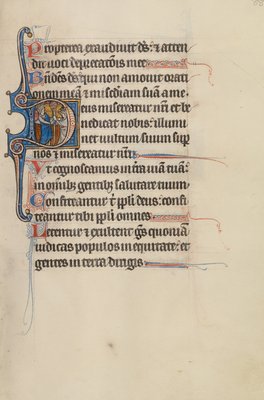 Propterea exaudiuit ds: & atten
dit uoci deprecationis mee.
Bndcs ds: qui non amouit orati
onem meam & miscdiam suam a me.
Deus misereatur nri et be
nedicat nobis: illumi
net uultum suum sup
nos & misereatur nri.
Ut cognoscamus in terra uiam tuam:
in omib; gentib; salutare tuum.
Confiteantur t ppli deus: confi
teantur tibi ppli omnes.
Letentur & exultent gtes quoniam
iudicas populos in equitate: et
gentes in terra dirigis.